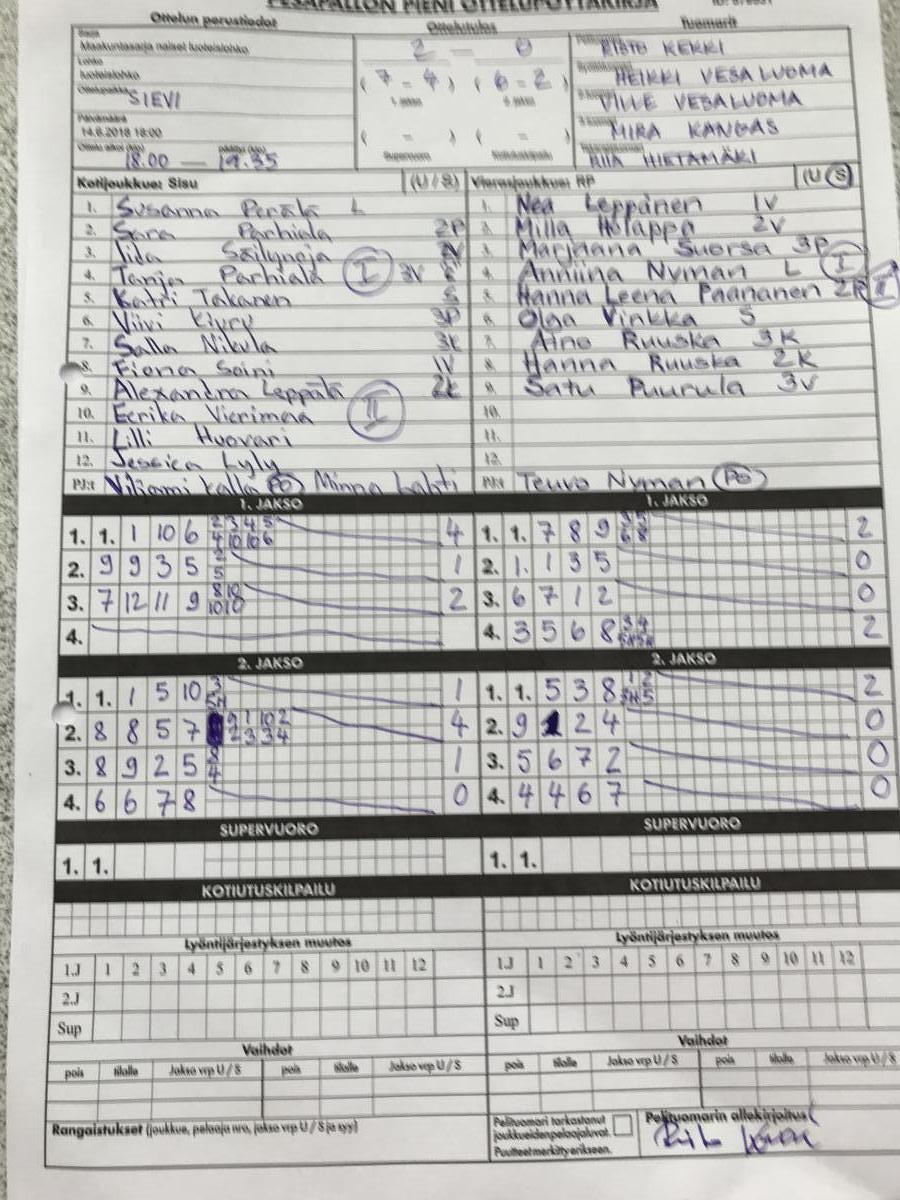 PESÄPALLON PIENI OTTELUPÖYTÄKIRJA
Ottelun perustiedot Ottelutulos Tuomarit
Sarja
Maakuntasarja naiset luoteislohko
2 - 0
RISTO KEKKI
Lohko
luoteislohko
(7 - 4) (6 - 2)
HEIKKI VESALUOMA
Ottelupaikka
SIEVI
VILLE VESALUOMA
Päivämäärä
14.6.2018 18:00
( - ) ( - )
MIRA KANGAS
Ottelu alkoi (klo) päättyi (klo)
18.00 — 19.35
Supervuoro Kotiutuskilpailu
HIETAMÄKI
Kotijoukkue: Sisu (U / S) Vierasjoukkue: RP (U / S)
1. Susanna Perälä L 1. Nea Leppänen 1V
2. Sara Parhiala 2P 2. Milla Holappa 2V
3. Iida Säilynoja 3. Marjaana Suorsa 3P
4. Tanja Parhiala I 3V 4. Anniina Nyman L I
5. Katri Takanen S 5. Hanna Leena Paananen II
6. Viivi 3P 6. Olga Vinkka S
7. Salla Nikula 3k 7. Aino Ruuska 3K
8. Fiona Soini 1V 8. Hanna Ruuska 2K
9. Alexandra Leppälä 2k 9. Satu Puurula 3V
10. Eerika Vierimaa II 10.
11. Lilli Huovari 11.
12. Jessica Lyly 12.
PJ:t Viljami Kallio PJ:t Teuvo Nyman
1. JAKSO 1. JAKSO
2 3 4 5 3 5
1. 1. 1 10 6 4 1. 1. 7 8 9 2
4 10 10 6 6 8
2
2. 9 9 3 5 1 2. 1. 1 3 5 0
5
8 10
3. 7 12 11 9 2 3. 6 7 1 2 0
10 10
3 4
4. 4. 3 5 6 8 2
2. JAKSO 2. JAKSO
3 1 2
1. 1. 1 5 10 1 1. 1. 5 3 8 2
5H 3H 5
9 1 10 2
2. 8 8 5 7 4 2. 9 1 2 4 0
2 3 3 4
8
3. 8 9 2 5 1 3. 5 6 7 2 0
4
4. 6 6 7 8 0 4. 4 4 6 7 0
SUPERVUORO SUPERVUORO
1. 1. 1. 1.
KOTIUTUSKILPAILU KOTIUTUSKILPAILU
Lyöntijärjestyksen muutos Lyöntijärjestyksen muutos
1.J 1 2 3 4 5 6 7 8 9 10 11 12 1.J 1 2 3 4 5 6 7 8 9 10 11 12
2.J 2.J
Sup Sup
Vaihdot Vaihdot
pois tilalle Jakso vrp U / S pois tilalle Jakso vrp U / S pois tilalle Jakso vrp U / S pois tilalle Jakso vrp U / S
Rangaistukset (joukkue, pelaaja nro, jakso vrp U / S ja syy)
Pelituomari tarkastanut
joukkueiden pelaajaluvat.
Puutteet merkitty erikseen.
Pelituomarin allekirjoitus